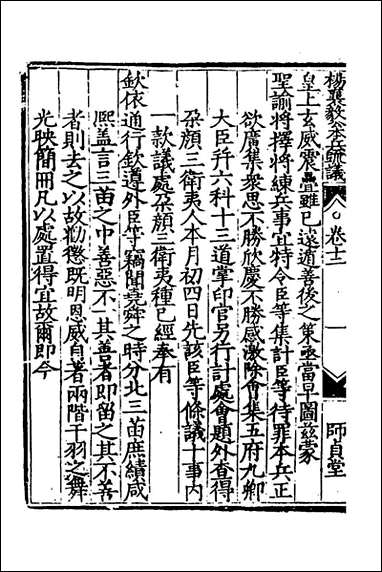 楊襄毅公本兵疏議　卷十二　一　師貞堂
皇上玄威震疊雖已遠遁善後之策亟當早圖茲蒙
聖諭將擇將練兵事宜特令臣等集計臣等待罪本兵正
欲廣集衆思不勝欣慶不勝感激除會集五府九卿
大臣幷六科十三道掌印官另行計處會題外查得
朶顏三衛夷人本月初四日先該臣等條議十事內
一款議處朶顏三衛夷種已經奉有
欽依通行欽遵外臣等竊聞堯舜之時分北三苗庶績咸
熙盖言三苗之中善惡不一其善者即留之其不善
者則去之以故勸懲既明恩威自著兩階干羽之舞
光映簡冊凡以處置得宜故爾即今